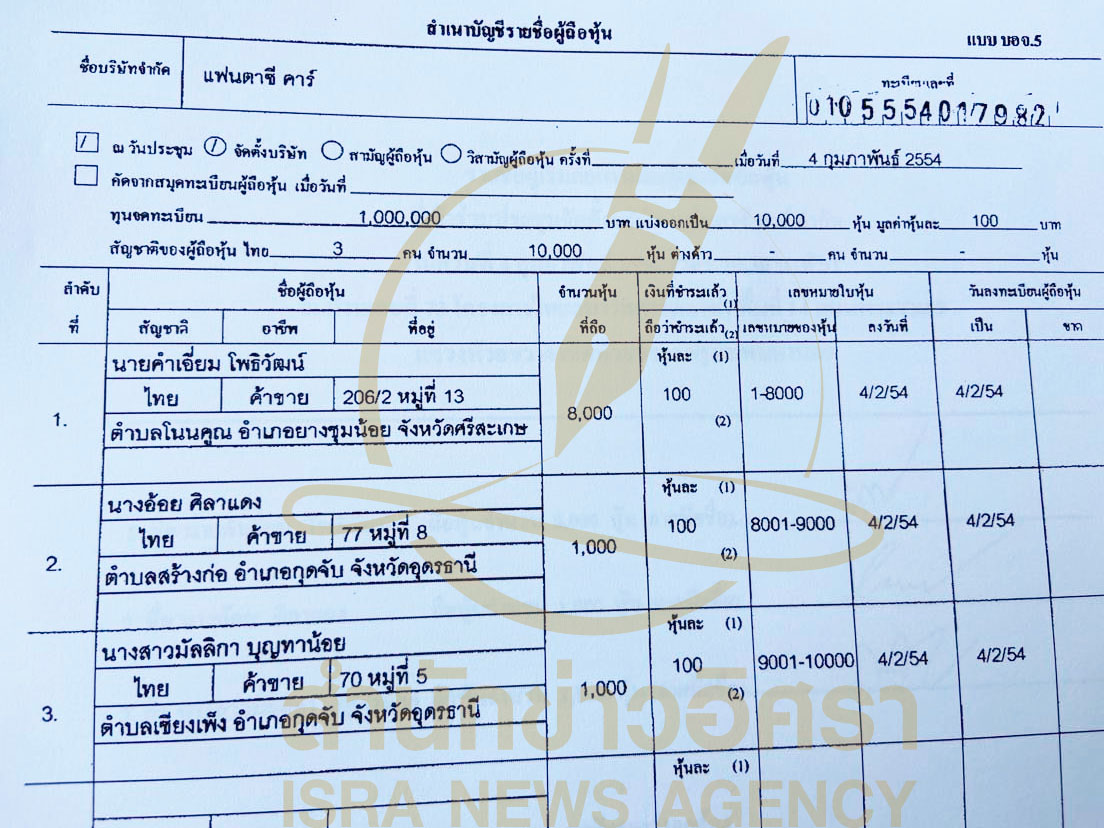 สำเนาบัญชีรายชื่อผู้ถือหุ้น
แบบ บอจ.5
ชื่อบริษัทจำกัด แฟนตาซี คาร์
ทะเบียนเลขที่
0105554017982
/ ณ วันประชุม / จัดตั้งบริษัท สามัญผู้ถือหุ้น วิสามัญผู้ถือหุ้น ครั้งที่ เมื่อวันที่ 4 กุมภาพันธ์ 2554
คัดจากสมุดทะเบียนผู้ถือหุ้น เมื่อวันที่
ทุนจดทะเบียน 1,000,000 บาท แบ่งออกเป็น 10,000 หุ้น มูลค่าหุ้นละ 100 บาท
สัญชาติของผู้ถือหุ้น ไทย 3 คน จำนวน 10,000 หุ้น ต่างด้าว - คน จำนวน - หุ้น
ลำดับ ชื่อผู้ถือหุ้น จำนวนหุ้น เงินที่ชำระแล้ว (1) เลขหมายใบหุ้น วันลงทะเบียนผู้ถือหุ้น
ที่ สัญชาติ อาชีพ ที่อยู่ ที่ถือ ถือว่าชำระแล้ว (2) เลขหมายของหุ้น ลงวันที่ เป็น ขาด
นายคำเอี่ยม โพธิวัฒน์ หุ้นละ (1)
ไทย ค้าขาย 206/2 หมู่ที่ 13 100 1-8000 4/2/54 4/2/54
1. ตำบลโนนคูณ อำเภอยางชุมน้อย จังหวัดศรีสะเกษ 8,000 (2)
นางอ้อย ศิลาแดง หุ้นละ (1)
ไทย ค้าขาย 77 หมู่ที่ 8 100 8001-9000 4/2/54 4/2/54
2. ตำบลสร้างก่อ อำเภอกุดจับ จังหวัดอุดรธานี 1,000 (2)
นางสาวมัลลิกา บุญทาน้อย หุ้นละ (1)
ไทย ค้าขาย 70 หมู่ที่ 5 100 9001-10000 4/2/54 4/2/54
3. ตำบลเชียงเพ็ง อำเภอกุดจับ จังหวัดอุดรธานี 1,000 (2)
หุ้นละ (1)
สำนักข่าวอิศรา
ISRA NEWS AGENCY